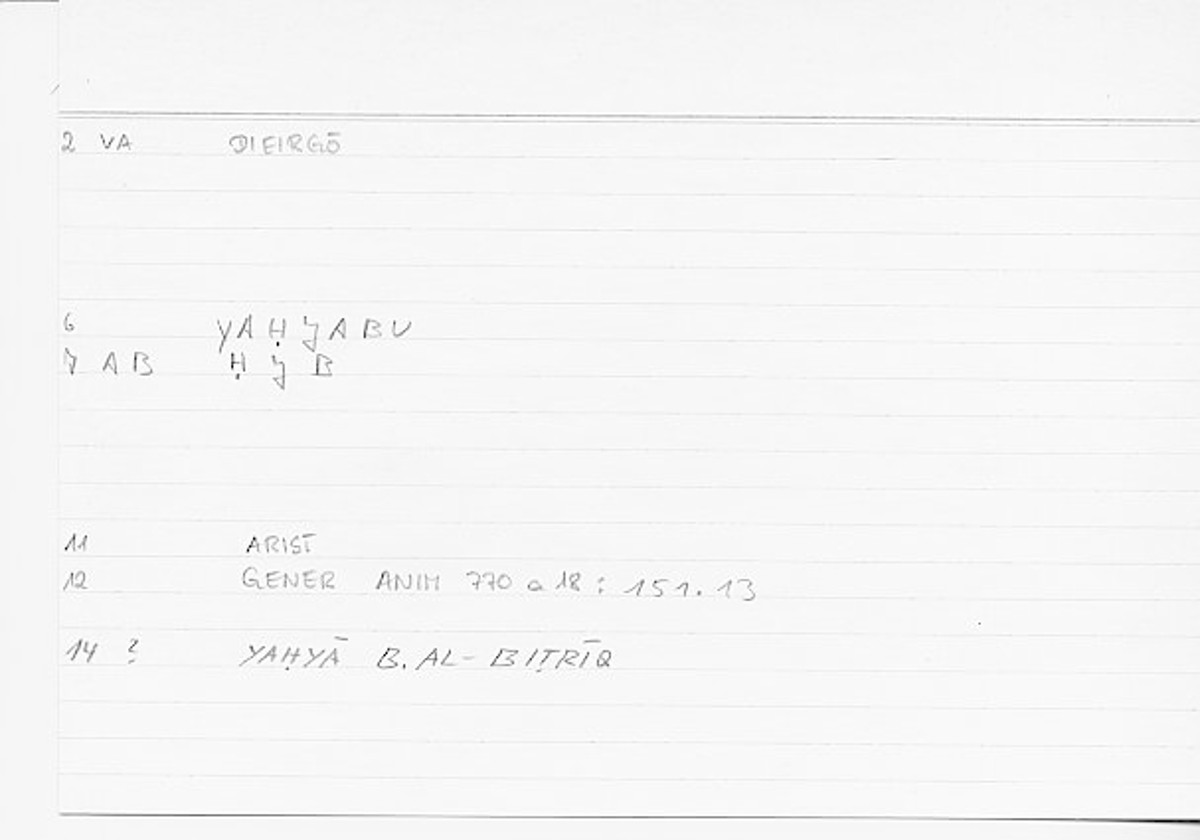 2 VA DIEIRGŌ
6 YAḤJABU
7 AB Ḥ J B
11 ARIST
12 GENER ANIM 770 a 18 : 151.13
14 ? YAḤYĀ B. AL-BIṬRĪQ